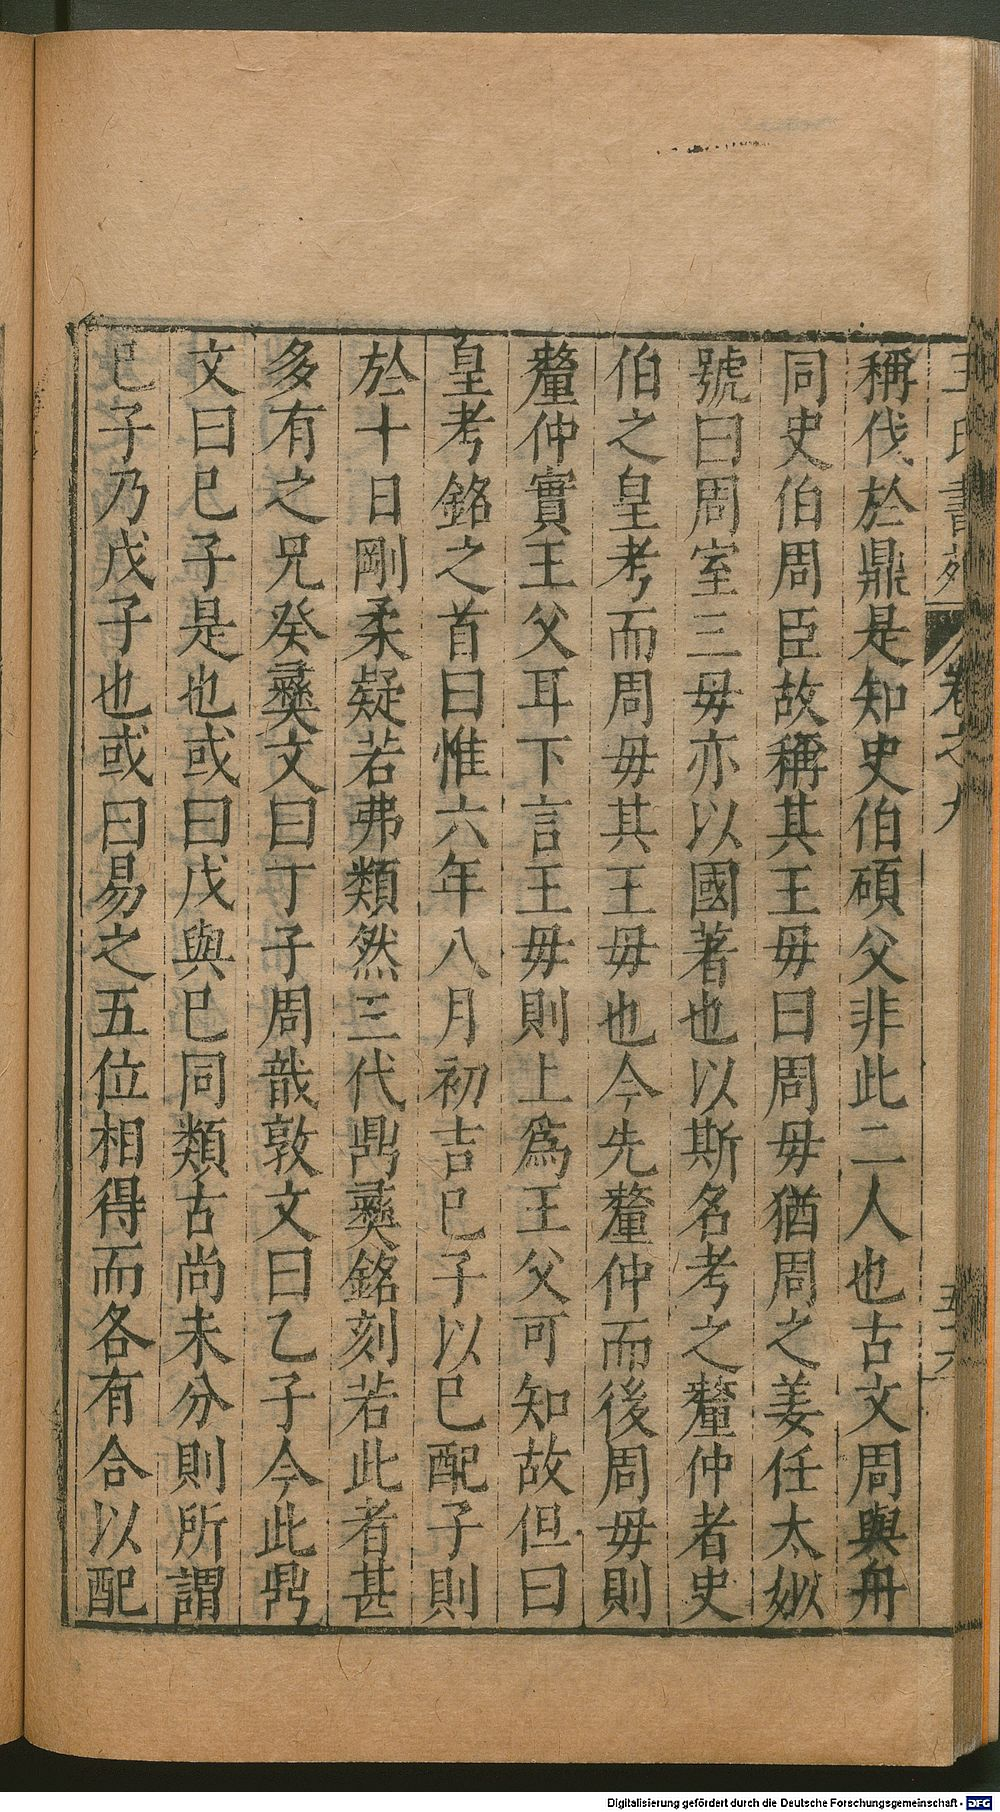 王氏書苑 卷之九 五十六
稱伐於鼎是知史伯碩父非此二人也古文周與舟
同史伯周臣故稱其王毋曰周毋猶周之姜任太姒
號曰周室三毋亦以國著也以斯名考之釐仲者史
伯之皇考而周毋其王毋也今先釐仲而後周毋則
釐仲實王父耳下言王毋則上爲王父可知故但曰
皇考銘之首曰惟六年八月初吉巳子以巳配子則
於十日剛柔疑若弗類然三代鼎彝銘刻若此者甚
多有之兄癸彝文曰丁子周敢敦文曰乙子今此鼎
文曰巳子是也或曰戊與巳同類古尚未分則所謂
巳子乃戊子也或曰易之五位相得而各有合以配
Digitalisierung gefördert durch die Deutsche Forschungsgemeinschaft - DFG